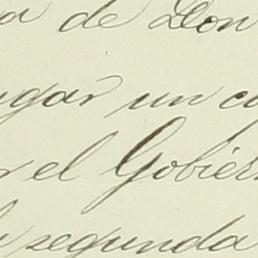 a de Don
ugar un c
r el Gobier
segunda